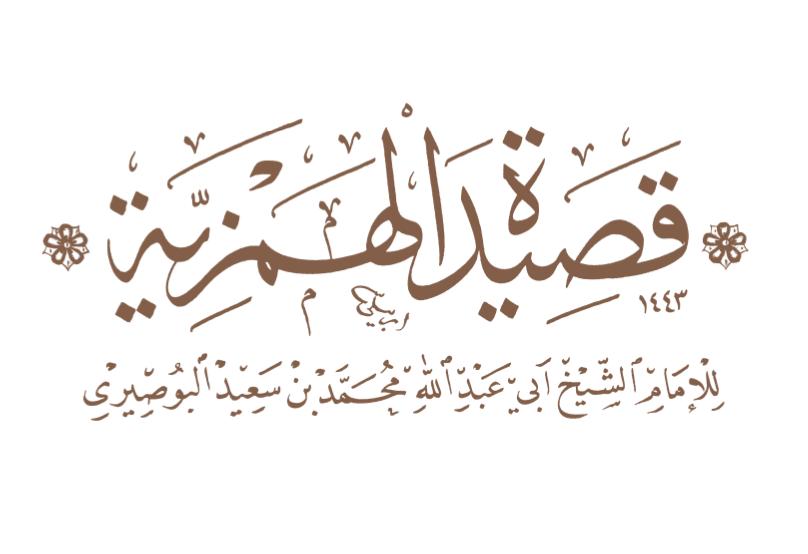 قَصِيدَةُ الْهَمْزِيَّةِ
١٤٤٣
لِلْإِمَامِ الشَّيْخِ أَبِي عَبْدِ اللّٰهِ مُحَمَّدِ بْنِ سَعِيْدِ الْبُوصِيْرِيِ